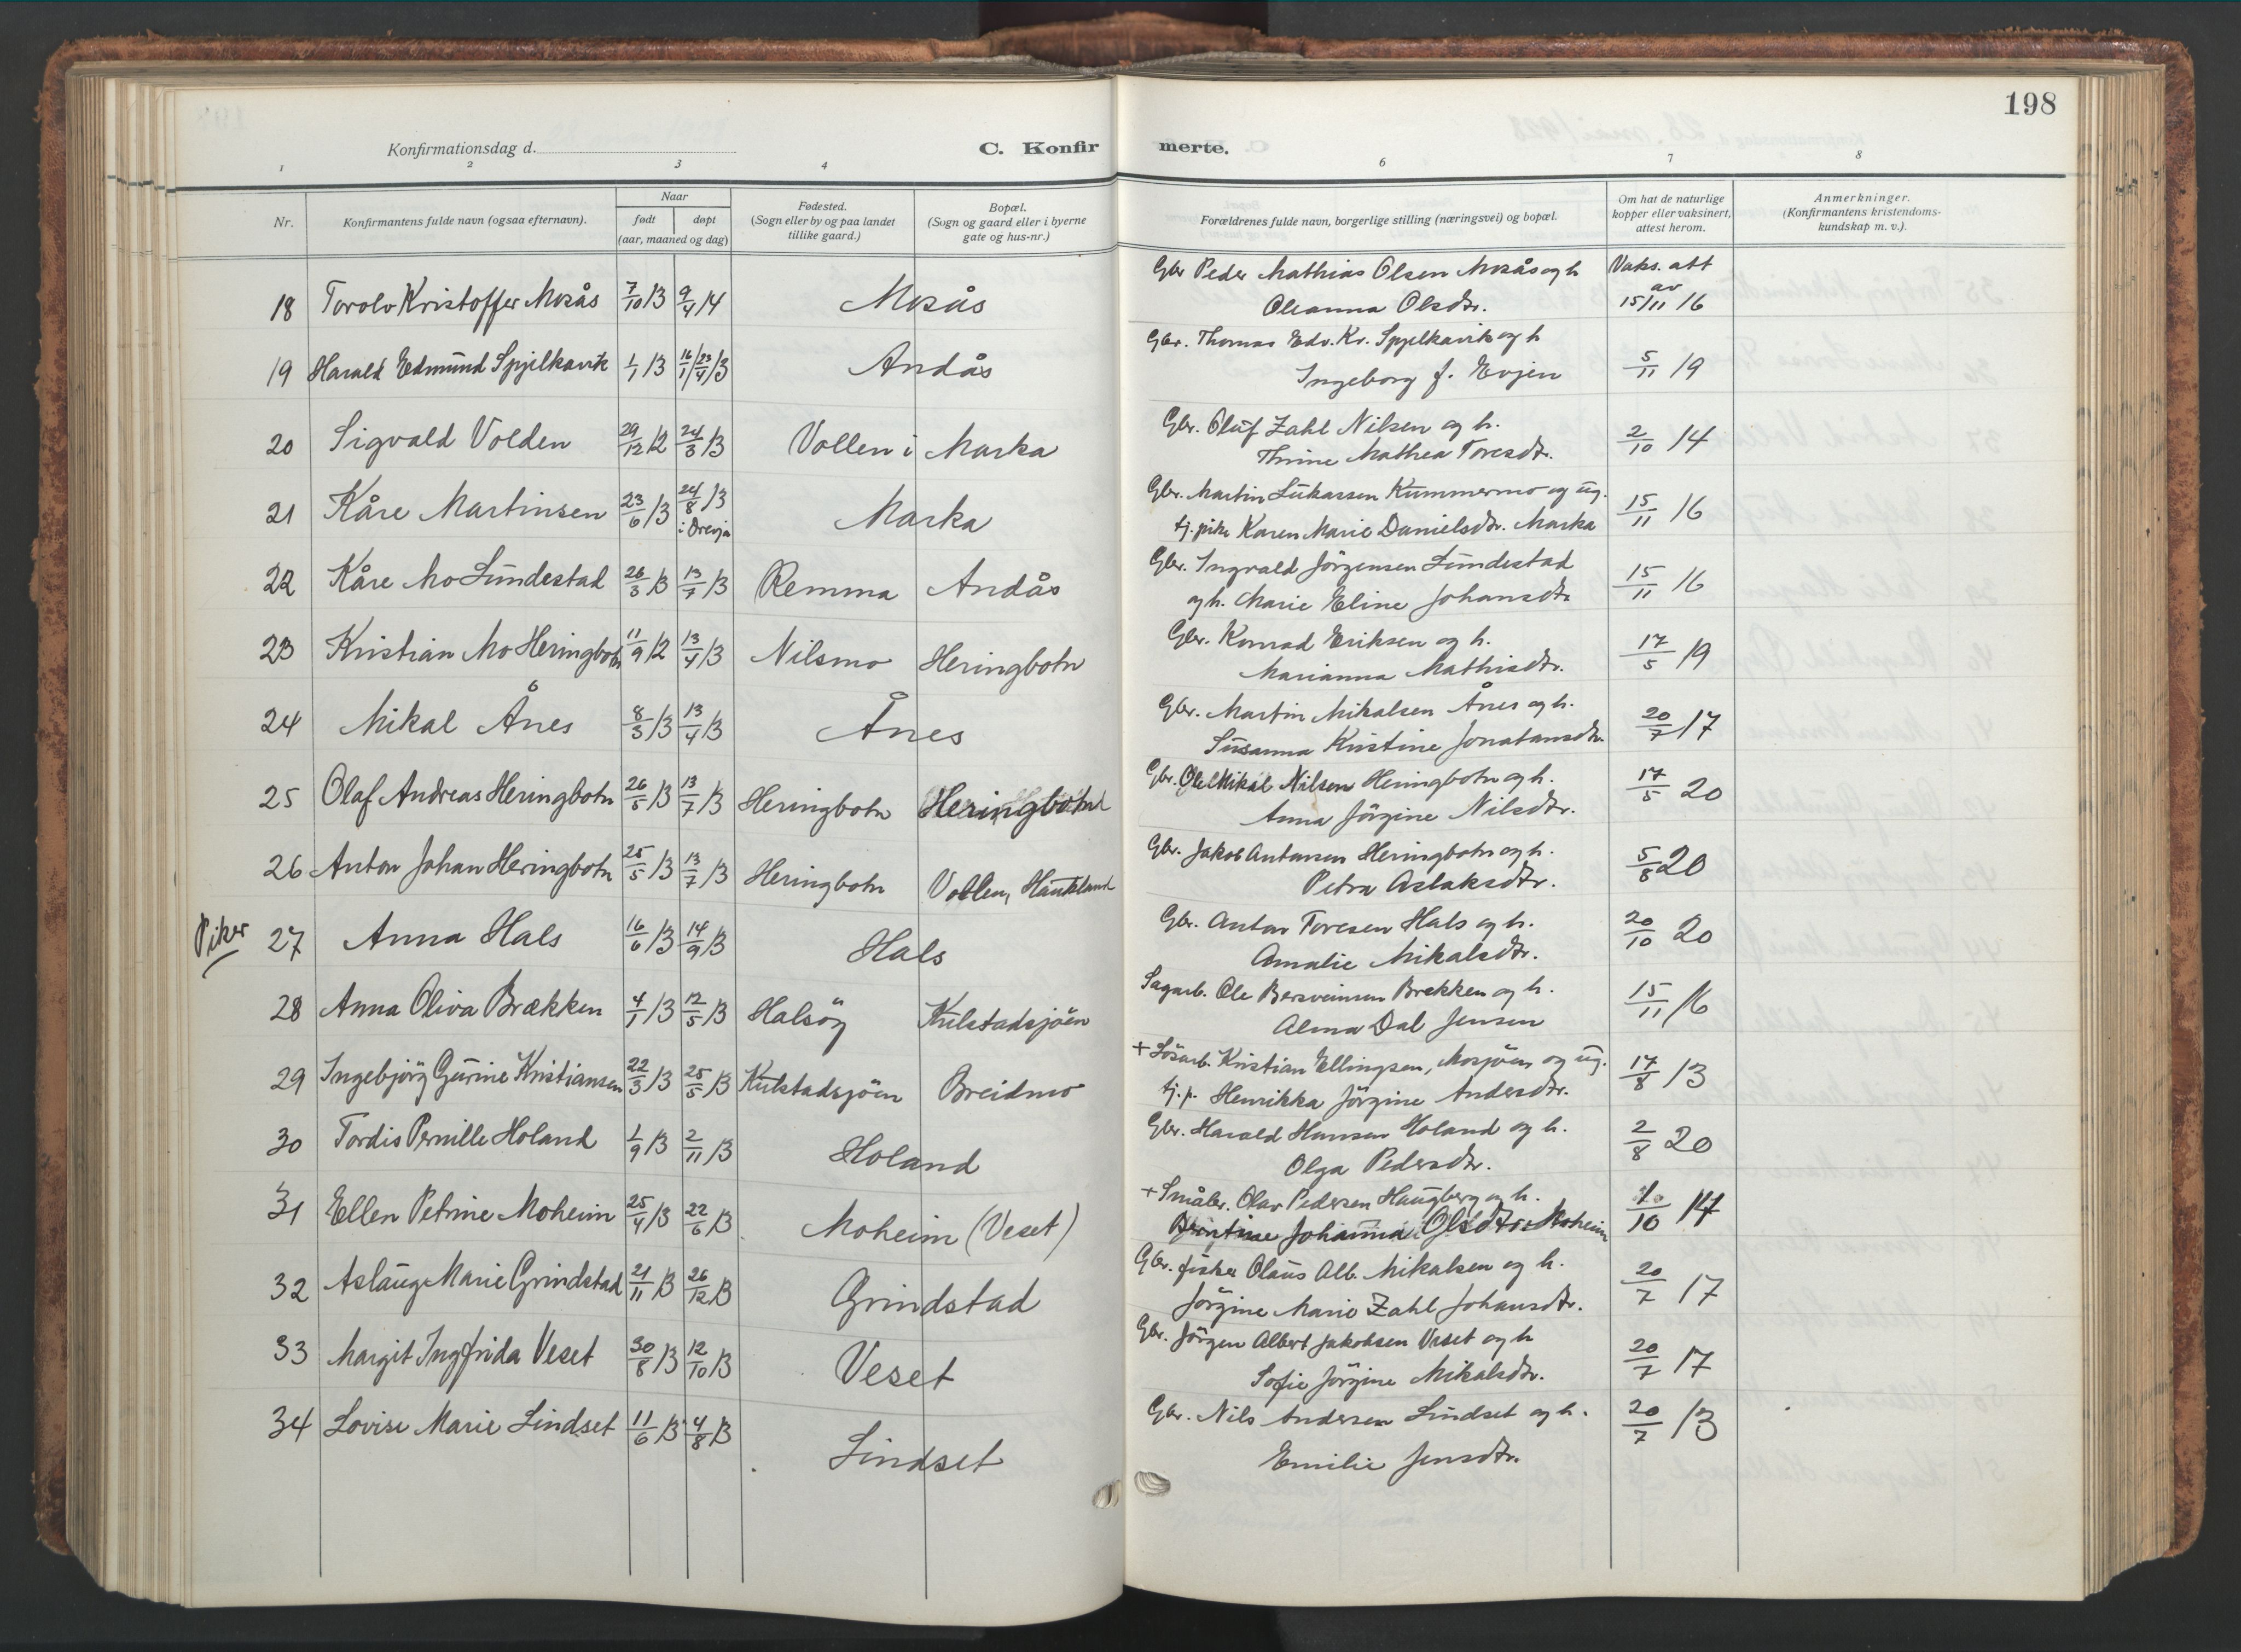 198
Konfirmationsdag d.
C. Konfir merte.
1 2 3 4 6 7 8
Nr. Konfirmantens fulde navn (ogsaa efternavn). Naar født døpt (aar, maaned og dag) Fødested. (Sogn eller by og paa landet tillike gaard.) Bopæl. (Sogn og gaard eller i byerne gate og hus-nr.) Forældrenes fulde navn, borgerlige stilling (næringsvei) og bopæl. Om hat de naturlige kopper eller vaksinert, attest herom. Anmerkninger. (Konfirmantens kristendoms-kundskap m. v.).
18 Torolv Kristoffer Mosås 7/10 13 9/4 14 Mosås Gbr Peder Mathias Olsen Mosås og h. Vaks. att av
Oleanna Olsdtr. 15/11 16
19 Harald Edmund Spjelkavik 1/1 13 16/1 / 23/4 /13 Andås Gbr. Thomas Edv. Kr. Spjelkavik og h
Ingeborg f. Evjen 5/11 19
20 Sigvald Volden 29/12 12 24/3 13 Vollen i Marka Gbr. Oluf Zahl Nilsen og h.
Thrine Mathea Toresdtr. 2/10 14
21 Kåre Martinsen 23/6 13 24/8 13 i Drevja Marka Gbr. Martin Lukassen Kummermo og ug.
tj. pike Karen Marie Danielsdtr. Marka 15/11 16
22 Kåre Mo Lundestad 26/3 13 13/7 13 Remma Andås Gbr. Ingvald Jörgensen Lundestad
og h. Marie Eline Johansdtr 15/11 16
23 Kristian Mo Heringbotn 11/9 12 13/4 13 Nilsmo Heringbotn Gbr. Konrad Eriksen og h.
Marianna Mathisdtr. 17/5 19
24 Mikal Ånes 8/3 13 13/4 13 Ånes Gbr. Martin Mikalsen Ånes og h.
Susanna Kristine Jonatansdtr. 20/7 17
25 Olaf Andreas Heringbotn 26/5 13 13/7 13 Heringbotn Heringbotn Gbr. Ole Mikal Nilsen Heringbotn og h.
Anna Jörgine Nilsdtr. 17/5 20
26 Anton Johan Heringbotn 25/5 13 13/7 13 Heringbotn Vollen, Hautland Gbr. Jakob Antonsen Heringbotn og h.
Petra Aslaksdtr. 5/8 20
Piker
27 Anna Hals 16/6 13 14/9 13 Hals Gbr. Anton Toresen Hals og h.
Amalie Mikalsdtr. 20/10 20
28 Anna Oliva Brækken 4/1 13 12/5 13 Halsöy Kulstadsjöen Sagarb. Ole Bersveinsen Brækken og h.
Alma Dal Jensen 15/11 16
29 Ingebjörg Gurine Kristiansen 22/3 13 25/5 13 Kulstadsjöen Breidmo + Lösarb. Kristian Ellingsen, Mosjöen og ug.
tj. p. Henrikka Jörgine Andersdtr. 17/8 13
30 Tordis Pernille Holand 1/9 13 2/11 13 Holand Gbr. Harald Hansen Holand og h.
Olga Pedersdtr. 2/8 20
31 Ellen Petrine Moheim 25/4 13 22/6 13 Moheim (Veset) + Småbr. Olav Pedersen Haugberg og h.
Johanna Olsdtr. Moheim 1/10 14
32 Aslaug Marie Grindstad 21/11 13 26/12 13 Grindstad Gbr. fisker Olaus Alb. Mikalsen og h.
Jörgine Marie Zahl Johansdtr. 20/7 17
33 Margit Ingfrida Veset 30/8 13 12/10 13 Veset Gbr. Jörgen Albert Jakobsen Veset og h
Sofie Jörgine Mikalsdtr. 20/7 17
34 Lovise Marie Lindset 11/6 13 4/8 13 Lindset Gbr. Nils Andersen Lindset og h.
Emilie Jensdtr. 20/7 13